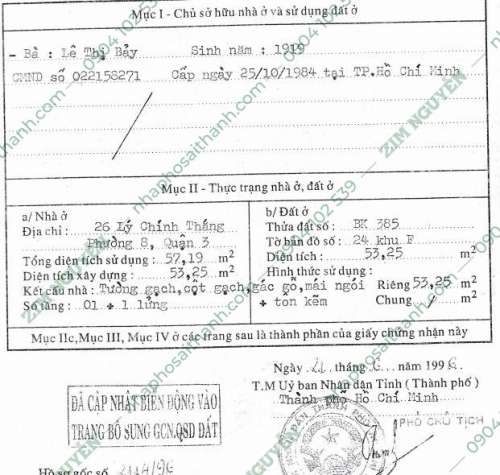 Mục I - Chủ sở hữu nhà ở và sử dụng đất ở
- Bà : Lê Thị Bảy Sinh năm : 1919
CMND số 022158271 Cấp ngày 25/10/1984 tại TP.Hồ Chí Minh
Mục II - Thực trạng nhà ở, đất ở
a/ Nhà ở
Địa chỉ : 26 Lý Chính Thắng
Phường 8, Quận 3
Tổng diện tích sử dụng : 57,19 m2
Diện tích xây dựng : 53,25 m2
Kết cấu nhà : Tường gạch,cột gạch,gác gỗ,mái ngói
Số tầng : 01 + 1 lửng + ton kẽm
b/ Đất ở
Thửa đất số : BK 385
Tờ bản đồ số : 24 khu F
Diện tích : 53,25 m2
Hình thức sử dụng :
Riêng 53,25 m2
Chung 0 m2
Mục IIc,Mục III, Mục IV ở các trang sau là thành phần của giấy chứng nhận này
Ngày tháng năm 199
T.M Uỷ ban Nhân dân Tỉnh ( Thành phố )
Thành phố Hồ Chí Minh
PHÓ CHỦ TỊCH
ĐÃ CẬP NHẬT BIẾN ĐỘNG VÀO
TRANG BỔ SUNG GCN.QSD ĐẤT
Hồ sơ gốc số
nhaphosaithanh.com — 0904 102 539 — ZIM NGUYEN